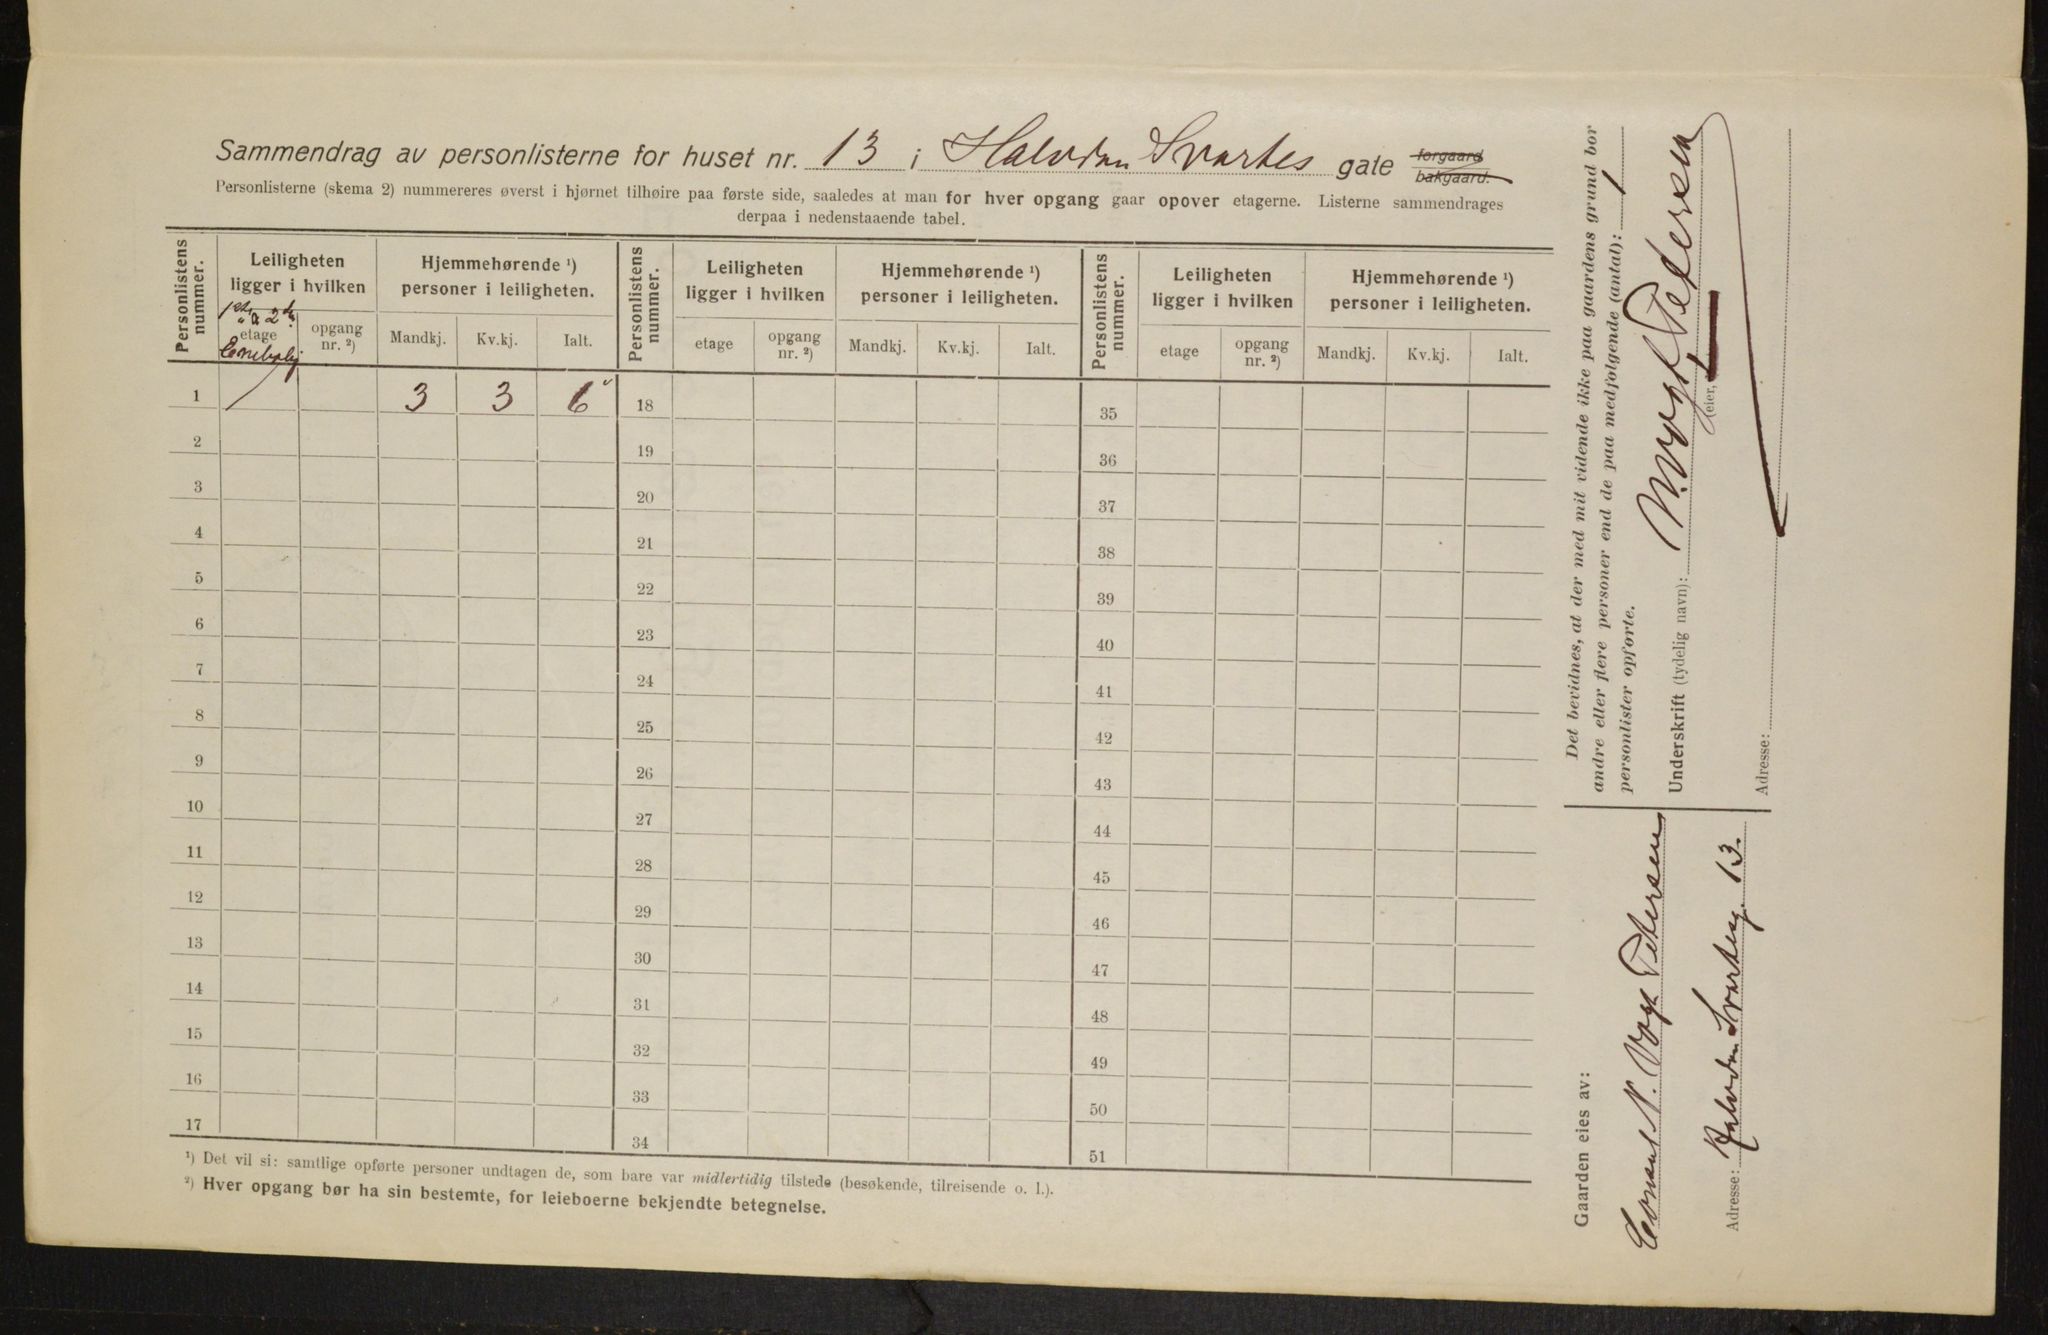 Sammendrag av personlisterne for huset nr. 13 i Halvdan Svartes gate forgaard bakgaard.
Personlisterne (skema 2) nummereres øverst i hjørnet tilhøire paa første side, saaledes at man for hver opgang gaar opover etagerne. Listerne sammendrages
derpaa i nedenstaaende tabel.
Personlistens nummer. Leiligheten ligger i hvilken Hjemmehørende ¹) personer i leiligheten. Personlistens nummer. Leiligheten ligger i hvilken Hjemmehørende ¹) personer i leiligheten. Personlistens nummer. Leiligheten ligger i hvilken Hjemmehørende ¹) personer i leiligheten.
etage opgang nr. ²) Mandkj. Kv.kj. Ialt. etage opgang nr. ²) Mandkj. Kv.kj. Ialt. etage opgang nr. ²) Mandkj. Kv.kj. Ialt.
1 3 3 6 18 35
2 19 36
3 20 37
4 21 38
5 22 39
6 23 40
7 24 41
8 25 42
9 26 43
10 27 44
11 28 45
12 29 46
13 30 47
14 31 48
15 32 49
16 33 50
17 34 51
¹) Det vil si: samtlige opførte personer undtagen de, som bare var midlertidig tilstede (besøkende, tilreisende o. l.).
²) Hver opgang bør ha sin bestemte, for leieboerne bekjendte betegnelse.
Det bevidnes, at der med mit vidende ikke paa gaardens grund bor
andre eller flere personer end de paa medfølgende (antal): 1
personlister opførte.
Underskrift (tydelig navn): N. Vogt Petersen
(eier,
Adresse:
Gaarden eies av:
N. Vogt Petersen
Adresse: Halvdan Svartesg. 13.